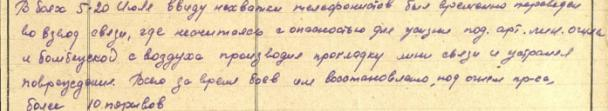 В боях 5-20 Июля ввиду нехватки телефонистов был временно переведен
во взвод связи, где несчитаясь с опасностью для жизни под. арт. мин. огнем
и бомбежкой с воздуха производил прокладку лини связи и устранял
повреждения. Всего за время боев им восстановлено, под огнем пр-ка,
более 10 порывов